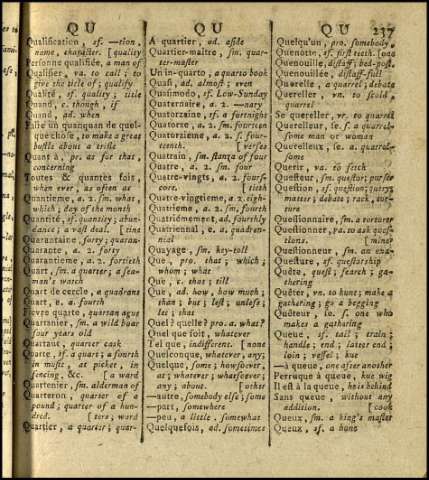 QU QU QU 237
Qualification, sf. —tion,
name, character. [quality
Personne qualifiée, a man of
Qualifier, va. to call; to
give the title of; qualify
Qualité, sf. quality; title
Quand, c. though, if
Quand, ad. when
Faire un quanquan de quel-
que chose, to make a great
bustle about a trifle
Quant à, pr. as for that,
concerning
Toutes & quantes fois,
when ever, as often as
Quantieme, a. 2. sm. what,
which; day of the month
Quantité, sf. quantity; abun-
dance; a vast deal. [tine
Quarantaine, forty; quaran-
Quarante, a. 2. forty
Quarantième, a. 2. fortieth
Quart, sm. a quarter; a sea-
man's watch
Quart de cercle, a quadrans
Quart, e. a. fourth
Fievre quarte, quartan ague
Quartanier, sm. a wild boar
four years old
Quartaut, quarter cask
Quarte, sf. a quart; a fourth
in music, at picket, in
fencing, &c. [a ward
Quartenier, sm. alderman of
Quarteron, quarter of a
pound; quarter of a hun-
dred. [ters; ward
Quartier, a quarter; quar-
A quartier, ad. aside
Quartier-maître, sm. quar-
ter-master
Un in-quarto, a quarto book
Quasi, ad. almost; even
Quasimodo, sf. Low-Sunday
Quaternaire, a. 2. —nary
Quatorzaine, sf. a fortnight
Quatorze, a. 2. sm. fourteen
Quatorzième, a. 2. four-
teenth. [verses
Quatrain, sm. stanza of four
Quatre, a. 2. sm. four
Quatre-vingts, a. 2. four-
score. [tieth
Quatre-vingtieme, a. 2. eigh-
Quatrième, a. 2. sm. fourth
Quatriémement, ad. fourthly
Quatriennal, e. a. quadrien-
nial
Quayage, sm. key-toll
Que, pro. that; which;
whom; what
Que, c. that; till
Que, ad. how, how much;
than; but; lest; unless;
let; that
Quel? quelle? pro. a. what?
Quel que soit, whatever
Tel que, indifferent. [none
Quelconque, whatever, any;
Quelque, some; howsoever,
at; whatever; whatsoever;
any; about. [other
—autre, somebody else; some
—part, somewhere
—peu, a little, somewhat
Quelquefois, ad. sometimes
Quelqu'un, pro. somebody
Quenotte, sf. first teeth. [oats
Quenouille, distaff; bed-post
Quenouillée, distaff-full
Querelle, a quarrel; debate
Quereller, vn. to scold,
quarrel
Se quereller, vr. to quarrel
Querelleur, se. f. a quarrel-
some man or woman
Querelleux, se. a. quarrel-
some
Querir, va. to fetch
Questeur, sm. questor; purser
Question, sf. question; query;
matter; debate; rack, tor-
ture
Questionnaire, sm. a torturer
Questionner, va. to ask ques-
tions. [miner
Questionneur, sm. an exa-
Questure, sf. questorship
Quête, quest; search; ga-
thering
Quêter, vn. to hunt; make a
gathering; go a begging
Quêteur, se. s. one who
makes a gathering
Queue, sf. tail; train;
handle; end; latter end;
loin; vessel; kue
—à queue, one after another
Perruque à queue, kue wig
Il est à la queue, he is behind
Sans queue, without any
addition. [cook
Queux, sm. a king's master
Queux, sf. a hone